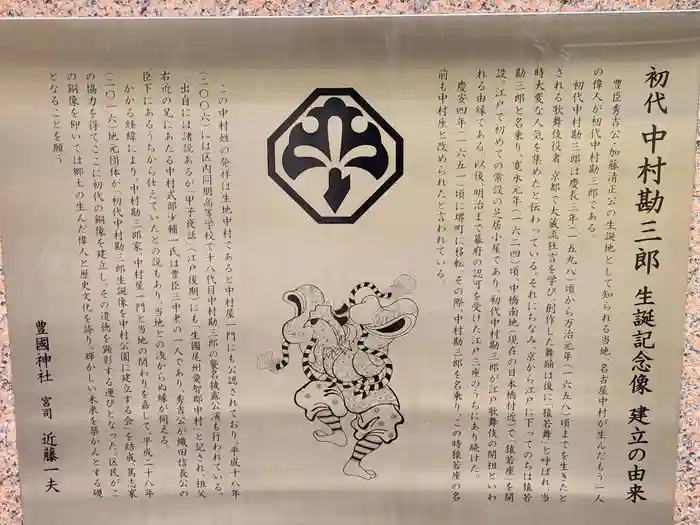 初代 中村勘三郎 生誕記念像 建立の由来
豊臣秀吉公・加藤清正公の生誕地として知られる当地、名古屋中村が生んだもう一人
の偉人が初代中村勘三郎である。
初代中村勘三郎は慶長三年(一五九八)頃から万治元年(一六五八)頃までを生きたと
される歌舞伎役者。京都で大蔵流狂言を学び、創作した舞踊は後に「猿若舞」と呼ばれ、当
時大変な人気を集めたと伝わっている。それにちなみ、京から江戸に下ってのちは猿若
勘三郎と名乗り、寛永元年(一六二四)頃、中橋南地(現在の日本橋付近)で「猿若座」を開
設。江戸で初めての常設の芝居小屋であり、初代中村勘三郎が江戸歌舞伎の開祖といわ
れる由縁である。以後、明治まで幕府の認可を受けた江戸三座のうちにあり続けた。
慶安四年(一六五一)頃に堺町に移転、その際、中村勘三郎を名乗り、この時猿若座の名
前も中村座と改められたと言われている。
この中村姓の発祥は生地中村であると中村屋一門にも公認されており、平成十八年
(二〇〇六)には区内同朋高等学校で十八代目中村勘三郎の襲名披露公演も行われている。
出自には諸説あるが「甲子夜話」(江戸後期)にも、「生國尾州愛知郡中村」と記され、祖父
右近の兄にあたる中村式部少輔一氏は豊臣三中老の一人であり、秀吉公が織田信長公の
臣下にあるうちから仕えていたとの説もあり、当地との浅からぬ縁が伺える。
かかる経緯により、中村勘三郎家・中村屋一門と当地の関わりを嘉して、平成二十八年
(二〇一六)地元団体が「初代中村勘三郎生誕像を中村公園に建立する会」を結成、篤志家
の協力を得て、ここに初代の銅像を建立し、その遺徳を顕彰する運びとなった。区民がこ
の銅像を仰いでは郷土の生んだ偉人と歴史文化を誇り、輝かしい未来を築かんとする礎
となることを願う
豊國神社 宮司 近藤一夫